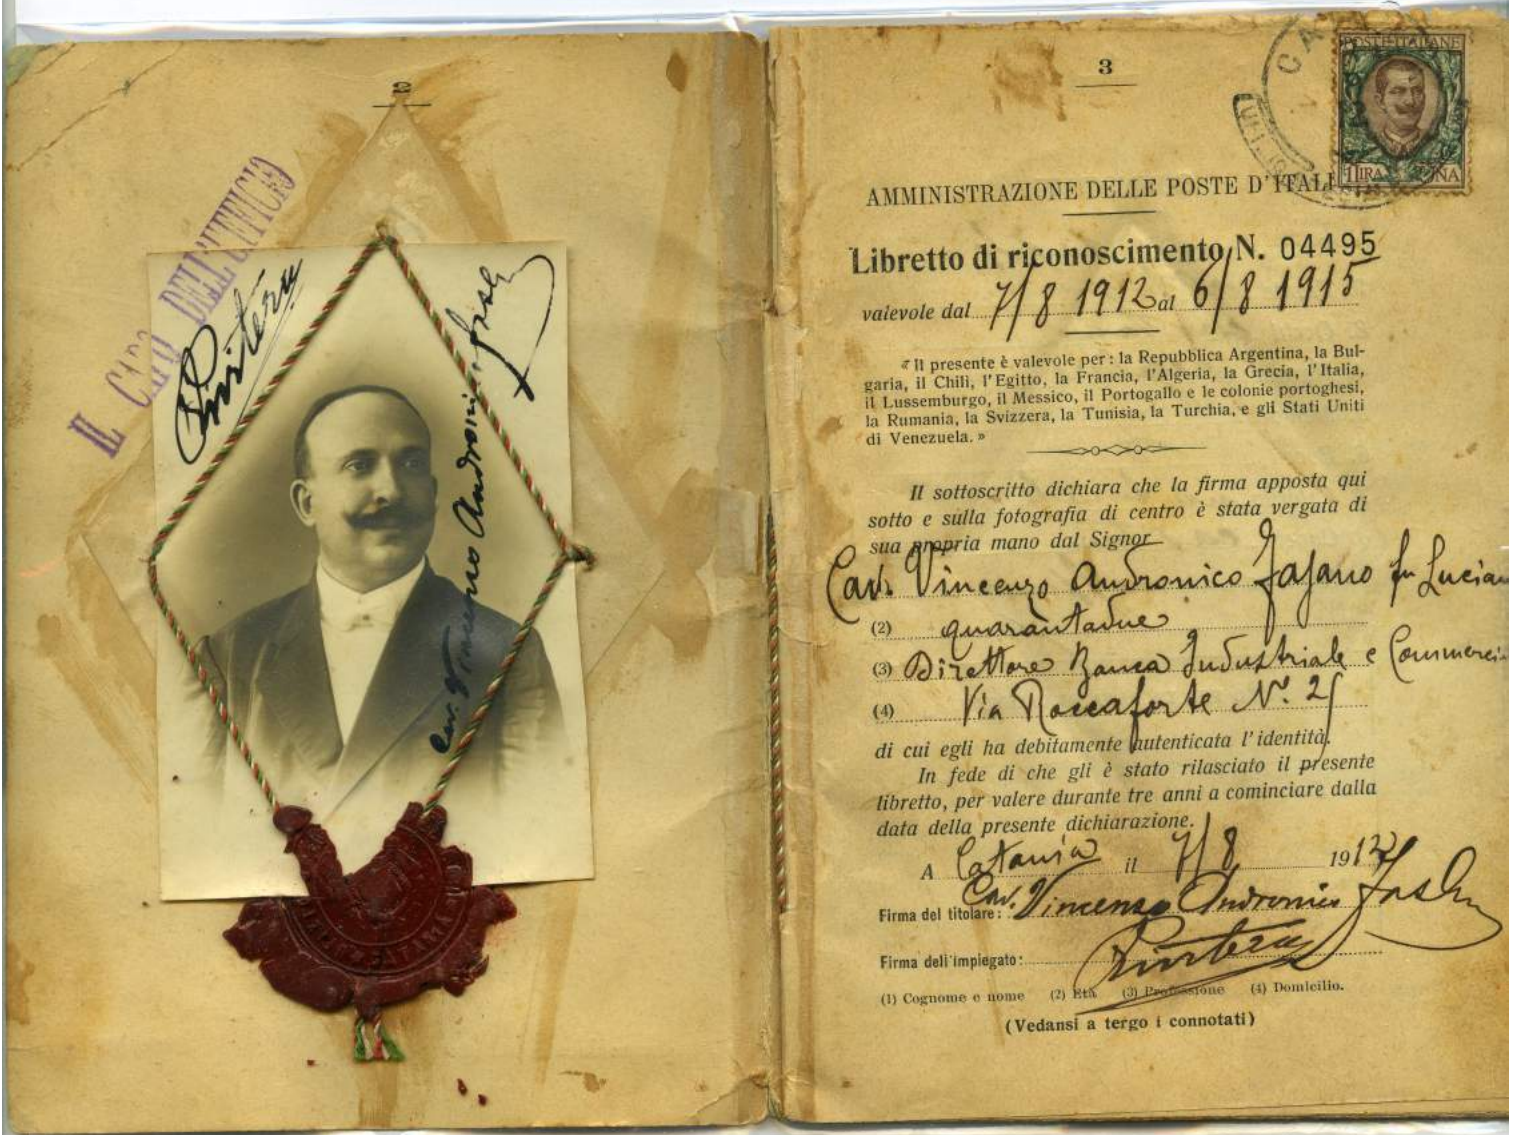 2
IL CAPO DELL'UFFICIO
Cav. Vincenzo Andronico
3
POSTE ITALIANE
1 LIRA UNA
CA
AMMINISTRAZIONE DELLE POSTE D'ITALI
Libretto di riconoscimento N. 04495
valevole dal 7/8 1912 al 6/8 1915
« Il presente è valevole per : la Repubblica Argentina, la Bul-
garia, il Chilì, l'Egitto, la Francia, l'Algeria, la Grecia, l'Italia,
il Lussemburgo, il Messico, il Portogallo e le colonie portoghesi,
la Rumania, la Svizzera, la Tunisia, la Turchia, e gli Stati Uniti
di Venezuela. »
Il sottoscritto dichiara che la firma apposta qui
sotto e sulla fotografia di centro è stata vergata di
sua propria mano dal Signor
Cav. Vincenzo Andronico Fasano fu Lucian
(2) quarantadue
(3) Direttore Banca Industriale e Commerci
(4) Via Roccaforte Nº.
di cui egli ha debitamente autenticata l'identità.
In fede di che gli è stato rilasciato il presente
libretto, per valere durante tre anni a cominciare dalla
data della presente dichiarazione.
A Catania il 7/8 1912
Firma del titolare: Cav. Vincenzo Andronico
Firma dell'impiegato:
(1) Cognome e nome (2) Età (3) Professione (4) Domicilio.
(Vedansi a tergo i connotati)